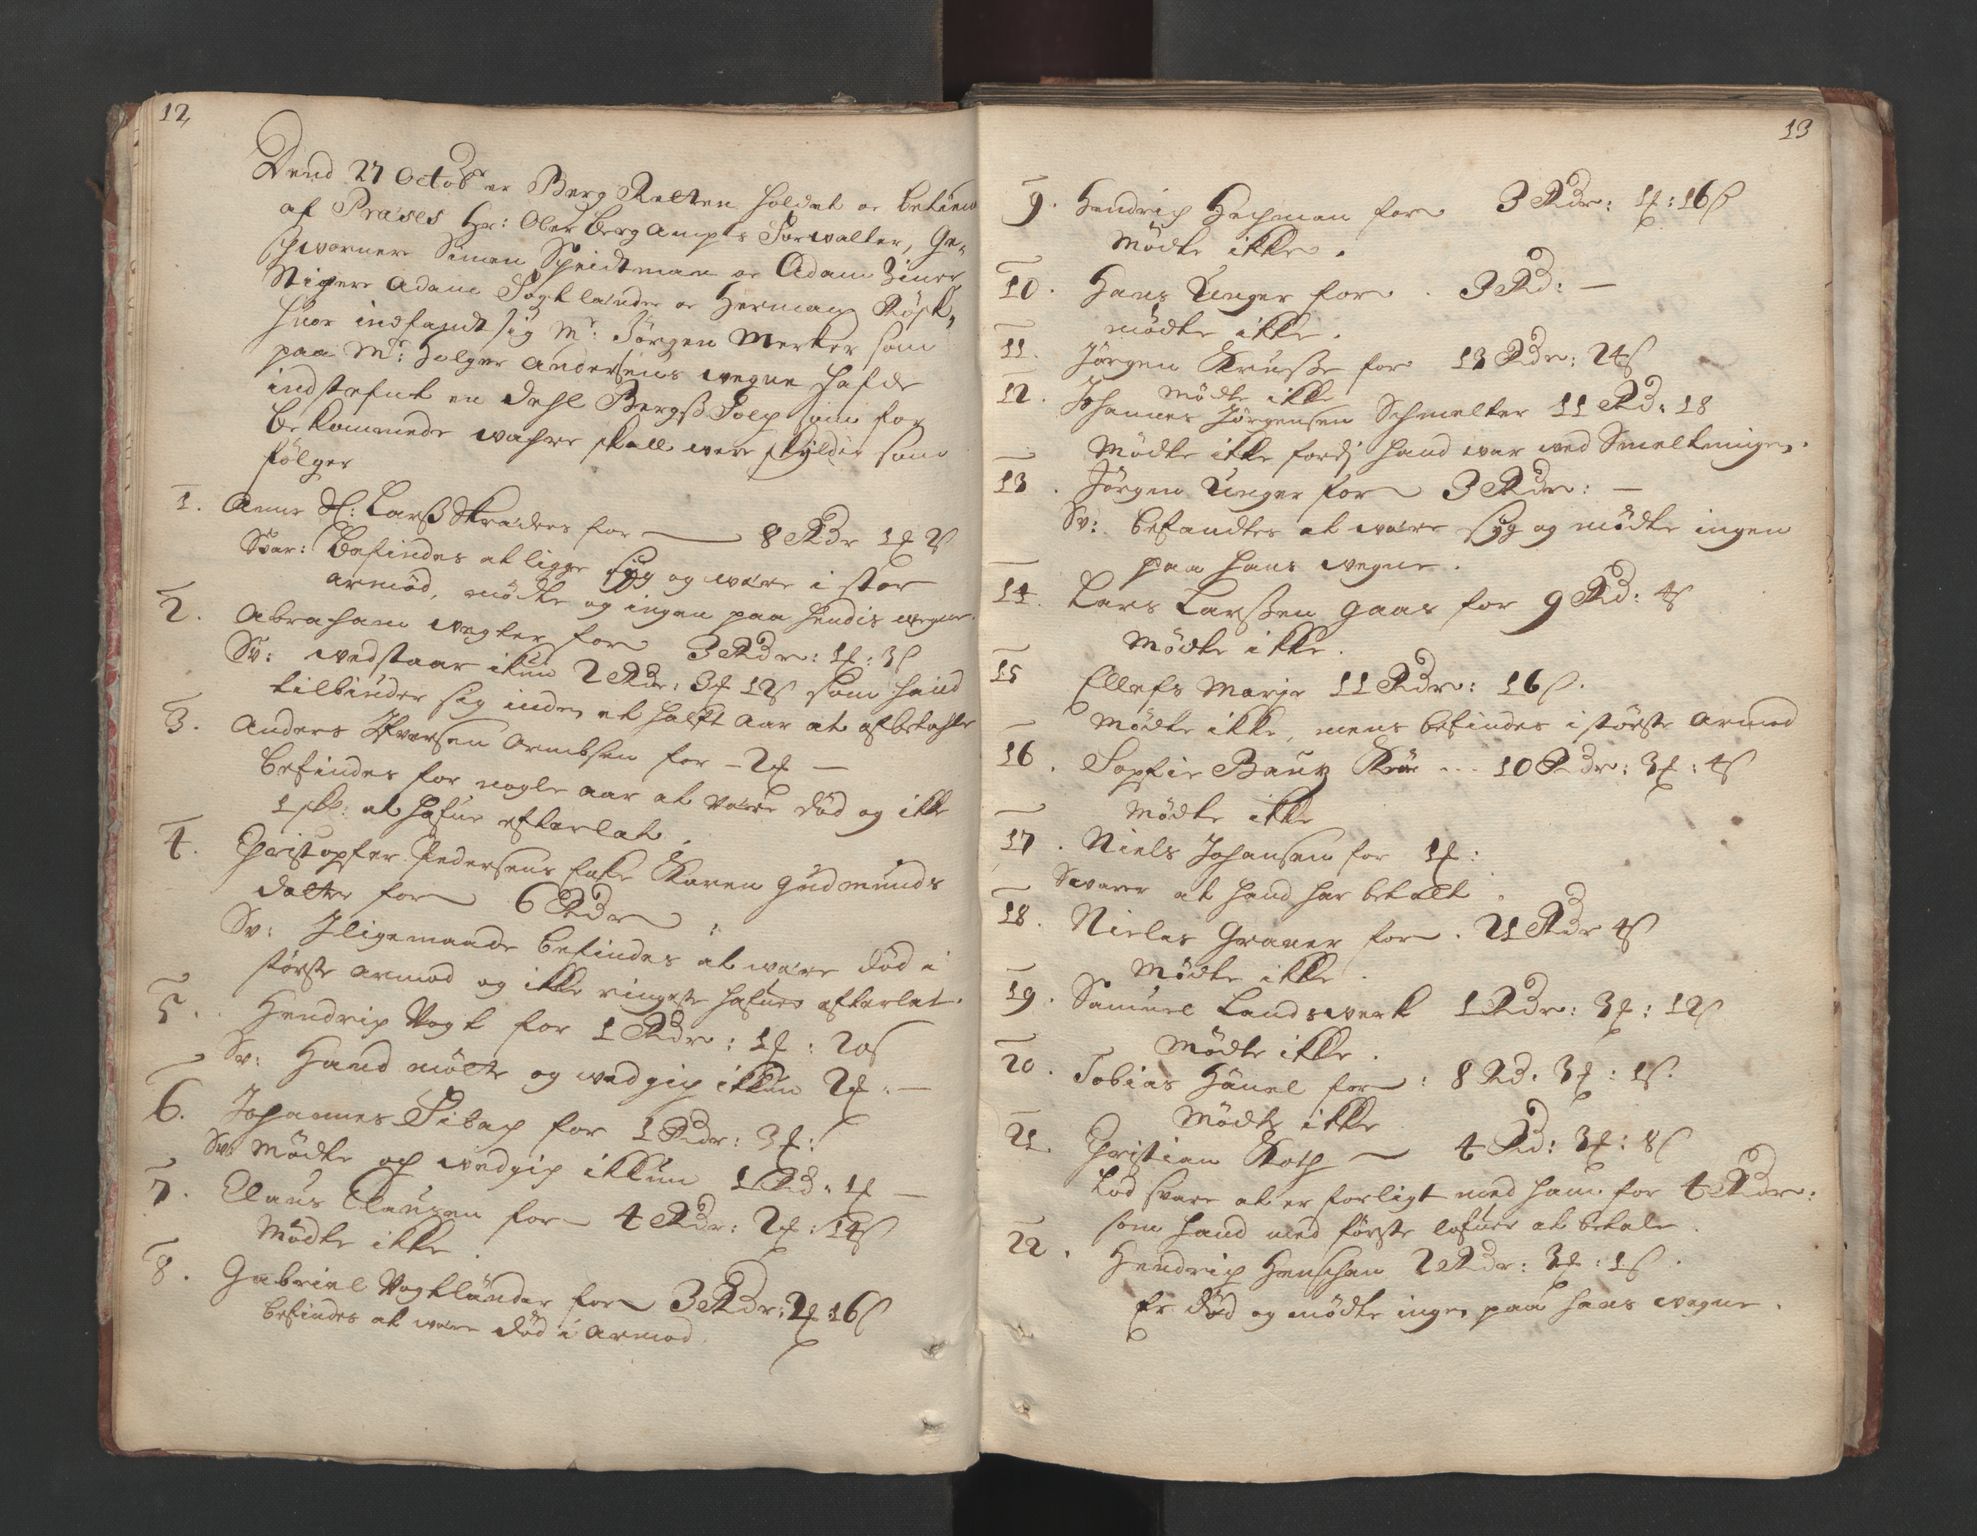 12
Dend 27 Octobr er Berg Retten holdet oc betient
af Præses Hr: Ober Berg Ampts Forwalter, Ge-
schwornere Simen Speidtman oc Adam Ziner
Stigere Adam Fogtlænder oc Herman Röseh,
hvor indfandt sig Mr: Jörgen Merker som
paa Mr: Holger Andersens wegne hafde
indstefnt en dehl Bergß Folch som for
bekommede wahre skall were skyldig som
fölger
1. Anne Sl: Larß Skræders for — 8 Rdr 1 ort 2 s
Svar: befindes at ligge syg og være i stor
armod, mødte og ingen paa hendis wegne.
2. Abraham wegter for 3 Rdr: 1 ort: 3 s
Sv: wedstaar ikun 2 Rdr: 3 ort 12 s som hand
tilbinder sig inden et halft aar at afbetahle
3. Anders Ifwersen Arnebsen for - 2 ort —
befindes for nogle aar at være död og ikke
1 sk: at hafue efterlat.
4. Christopher Pedersens Enke Karen Gudmunds
datter for 6 Rdr
Sv: Iligemaade befindes at være död i
störste armod og ikke ringeste hafuer efterlat.
5. Hendrich Vogt for 1 Rdr: 1 ort: 20 s
Sv: Hand mötte og wedgich ikkun 2 ort: —
6. Johannes Sibach for 1 Rdr: 3 ort:
Sv: Mödte och wedgich ikkun 1 Rd: 1 ort —
7. Claus Clausen for 4 Rdr: 2 ort: 14 s
Mödte ikke.
8. Gabriel Vogtländer for 3 Rdr: 2 ort: 16 s
befindes at være död i armod.
13
9. Hendrich Hechman for 3 Rdr: 1 ort: 16 s
Mödte ikke.
10. Hans Unger for. 3 Rd: —
mödte ikke.
11. Jörgen Kruße for 13 Rdr: 24 s
Mödte ikke
12. Johannes Jörgensen Schmelter 11 Rd: 18
Mödte ikke fordj hand war wed Smeltningen.
13. Jörgen Unger for 3 Rdr: —
Sv: befandtes at være syg og mödte ingen
paa hans wegne.
14. Lars Larßen Gaas for 9 Rd: 4 s
Mödte ikke.
15 Ellefs Marje 11 Rdr: 16 s.
Mödte ikke, mens befindes i störste armod
16. Sophie Bauz Kröe ... 10 Rdr: 3 ort: 4 s
Mödte ikke
17. Niels Johansen for 1 ort:
Swarer at hand har betalt.
18. Nieles Graver for. 21 Rdr 4 s
Mödte ikke.
19. Samuel Landswerk 1 Rdr: 3 ort: 12 s
Mödte ikke.
20. Tobias Hänel for: 8 Rd. 3 ort: 1 s.
Mödte ikke
21. Christian Koth — 4 Rd: 3 ort: 8 s
Lod svare at er forligt med ham for 4 Rdr:
som hand med förste lofuer at betale.
22. Hendrich Henschen 2 Rdr: 3 ort: 1 s.
Er död og mödte ingen paa hans wegne.